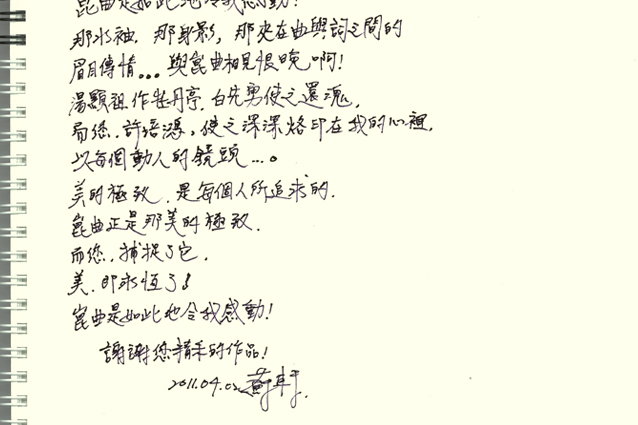 崑曲是如此地令我感動!
那水袖, 那身影, 那夾在曲與詞之間的
眉目傳情... 與崑曲相見恨晚啊!
湯顯祖作牡丹亭, 白先勇使之還魂,
而您, 許培鴻, 使之深深烙印在我的心裡,
以每個動人的鏡頭....。
美的極致, 是每個人所追求的.
崑曲正是那美的極致.
而您, 捕捉了它,
美, 即永恆了!
崑曲是如此地令我感動!
謝謝您精采的作品!
2011.04.02